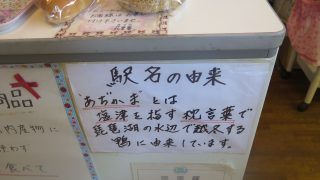 駅名の由来
"あぢかま"とは
塩津を指す枕言葉で
琵琶湖の水辺で越冬する
鴨に由来しています。
商品
内産物に
食べて